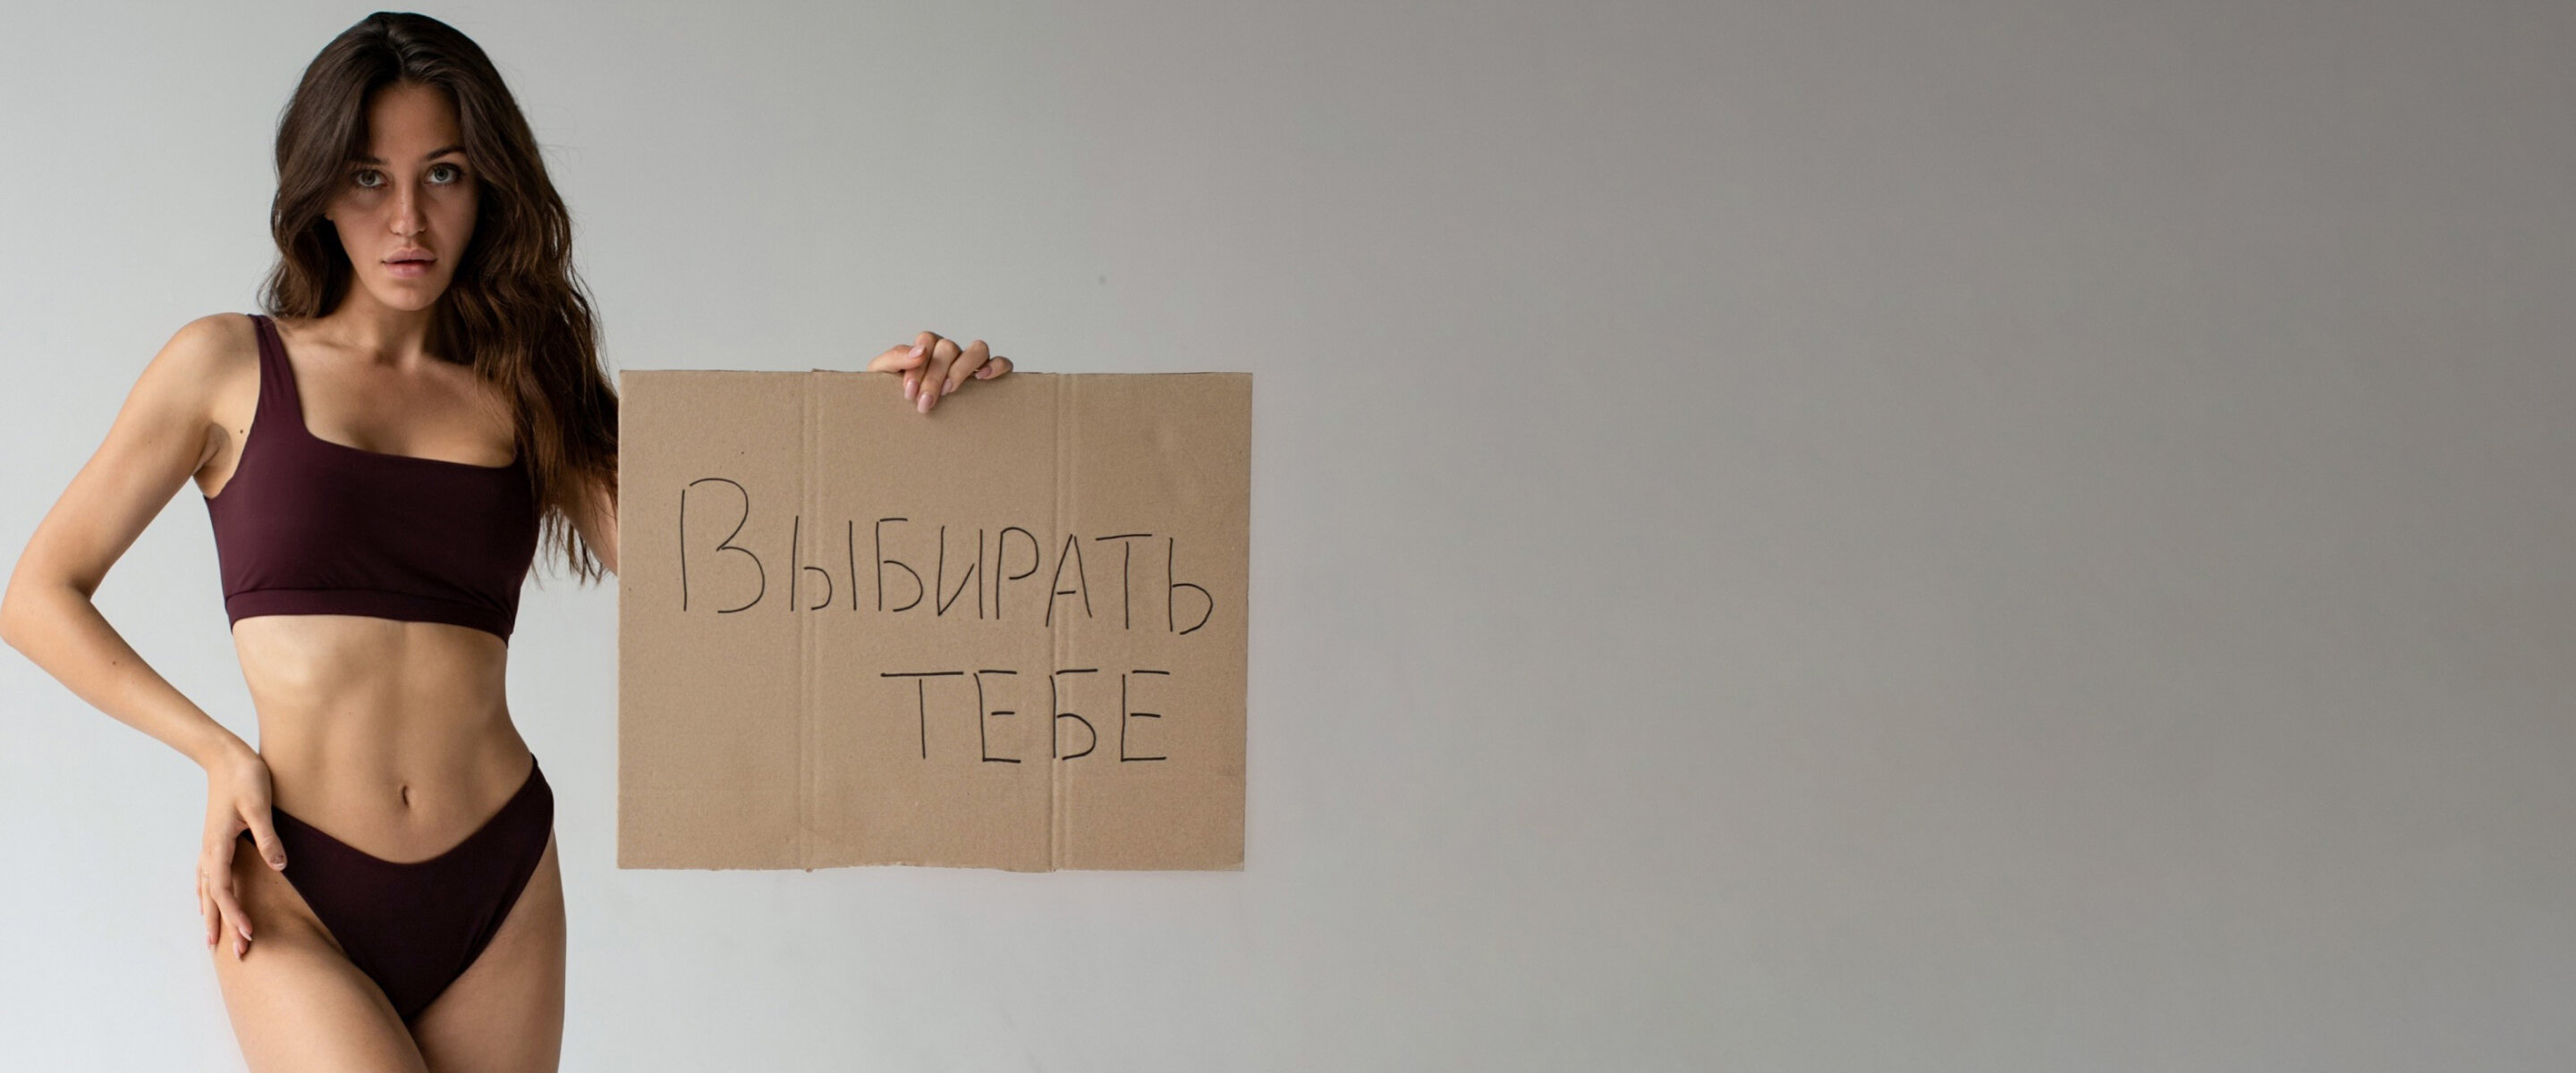 ВЫБИРАТЬ
ТЕБЕ